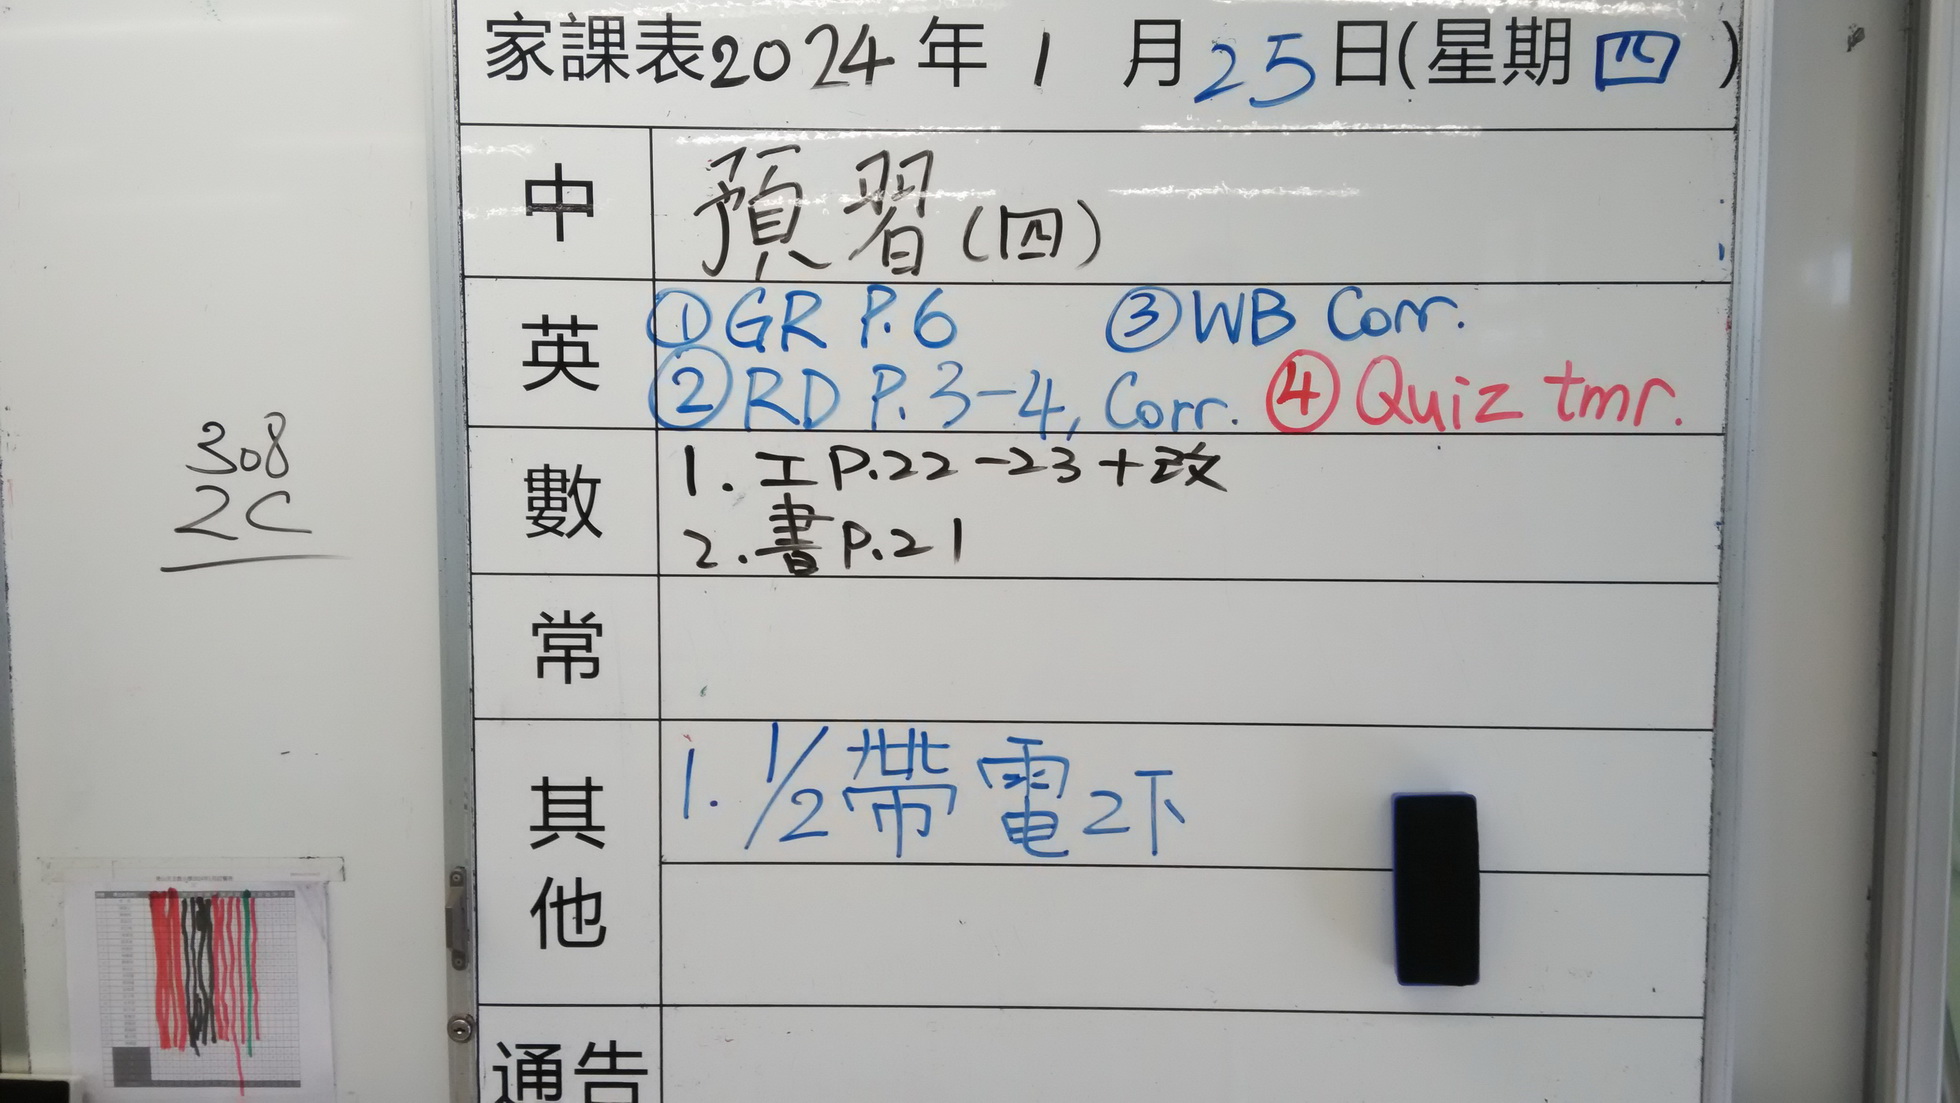 家課表2024年1月25日(星期四)
中 預習(四)
英 ①GR P.6 ③WB Corr.
②RD P.3-4, Corr. ④Quiz tmr.
數 1. 工P.22-23+改
2. 書P.21
常
其他 1. 1/2帶電2下
通告
308
2C